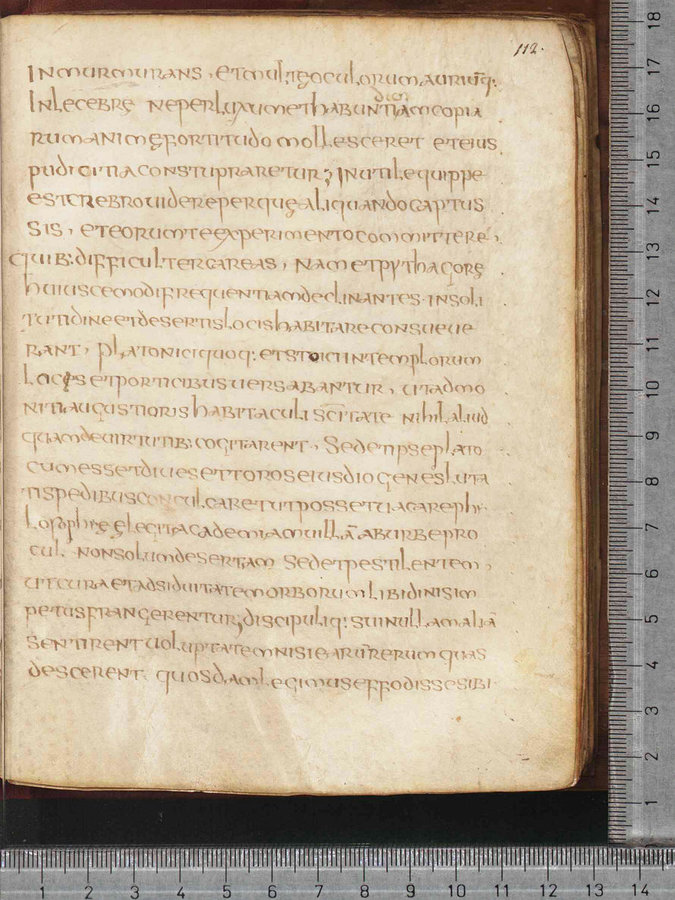 112.
Inmurmurans, et mul,tę oculorum auriumq:
Inlecebrę neperluxumethabuntiamcopia
dan
rumanimęfortitudo mollesceret eteius
pudicitiaconstupraretur; Inutilequippe
estcrebrouidereperquęaliquandocaptus
sis, eteorumteexperimentocommittere,
quib: difficultercareas, nametpythagorę
huiuscemodifrequentiamdeclinantes insoli
tutidineetdesertislocishabitareconsueue
rant, platoniciquoq: etstoiciintemplorum
locisetporticibusuersabantur, utadmo
nitiaugustiorishabitaculi scītate nihilaliud
quamdeuirtutib: cogitarent, Sedetipseplato
cumessetdiuesettoroseiusdiogenesluta
tispedibusconculcaretutpossetuacarephi
losophię elegitacademiamuillā aburbepro
cul nonsolumdesertam sedetpestilentem,
utcuraetadsiduitatemorborumlibidinisim
petusfrangerentur, discipuliq: suinullamaliā
sentirentuoluptatemnisiearūrerumquas
descerent. quosdamlegimuseffodissesibi
18
17
16
15
14
13
12
11
10
9
8
7
6
5
4
3
2
1
1 2 3 4 5 6 7 8 9 10 11 12 13 14